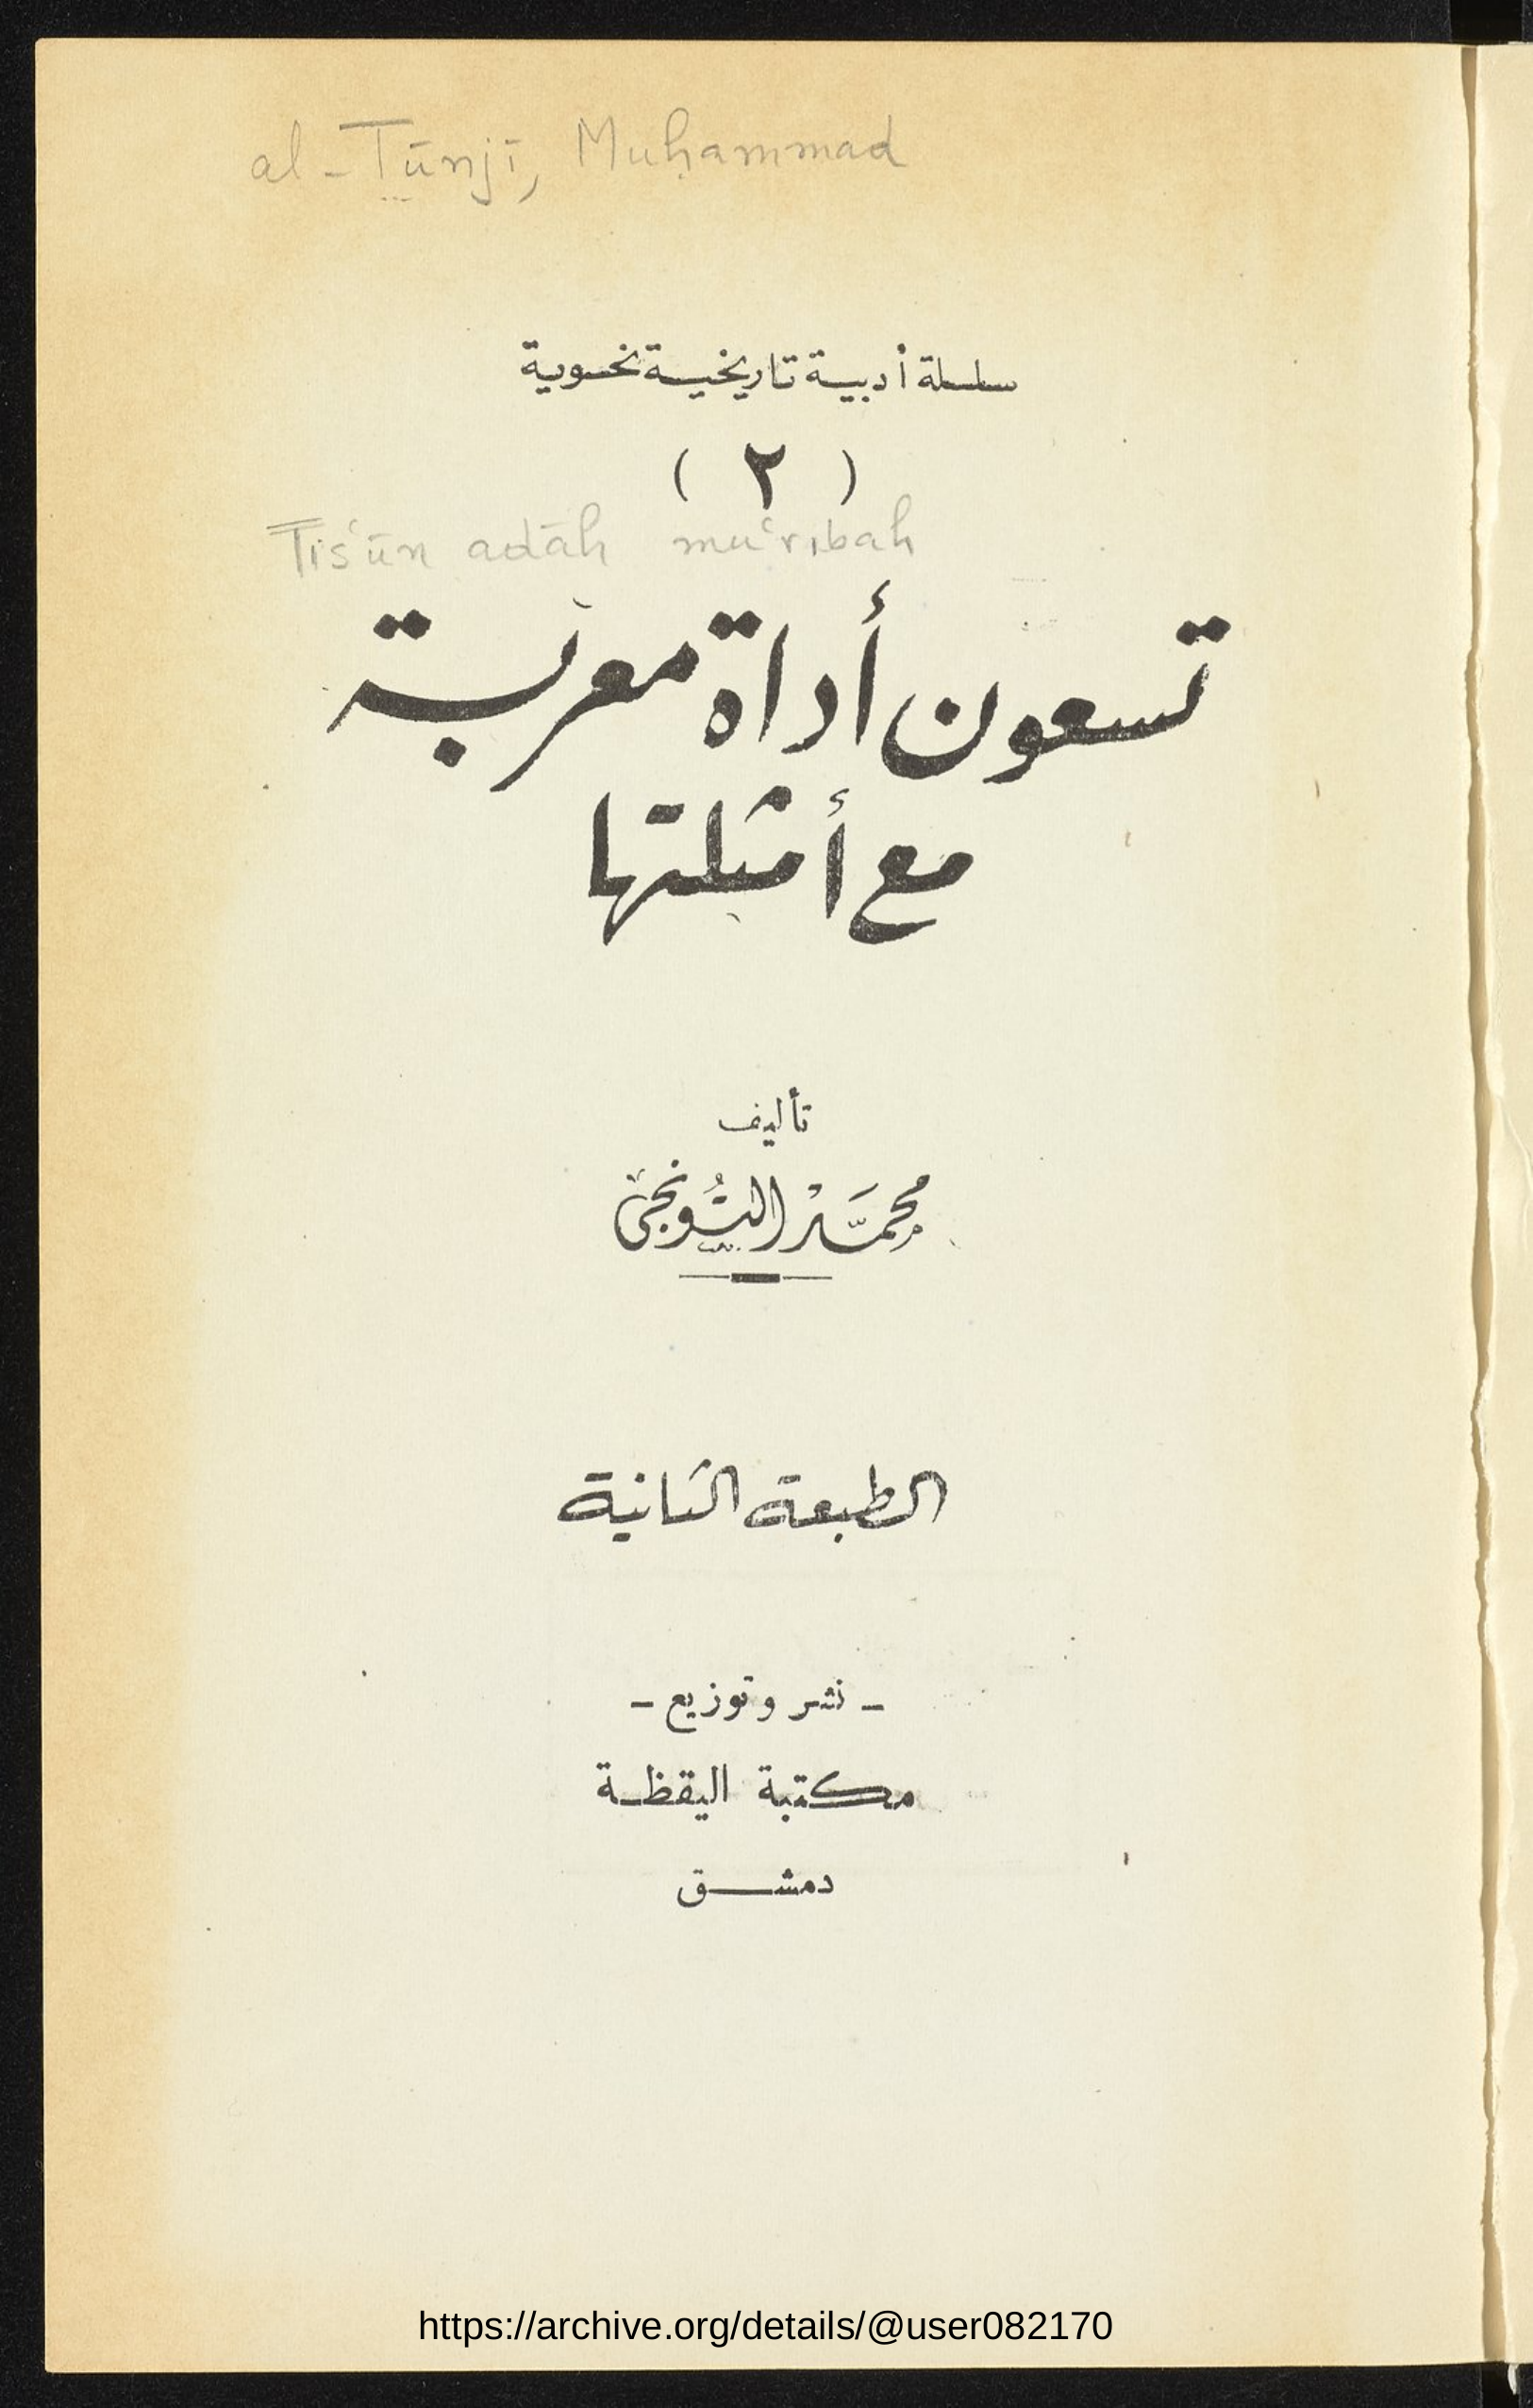 al-Tūnjī, Muḥammad
سلسلة أدبية تاريخية نحوية
( ٢ )
Tis'ūn adāh mu'ribah
تسعون أداة معربة
مع أمثلتها
تأليف
محمَّد التُونجي
الطبعة الثانية
- نشر وتوزيع -
مكتبة اليقظة
دمشق
https://archive.org/details/@user082170